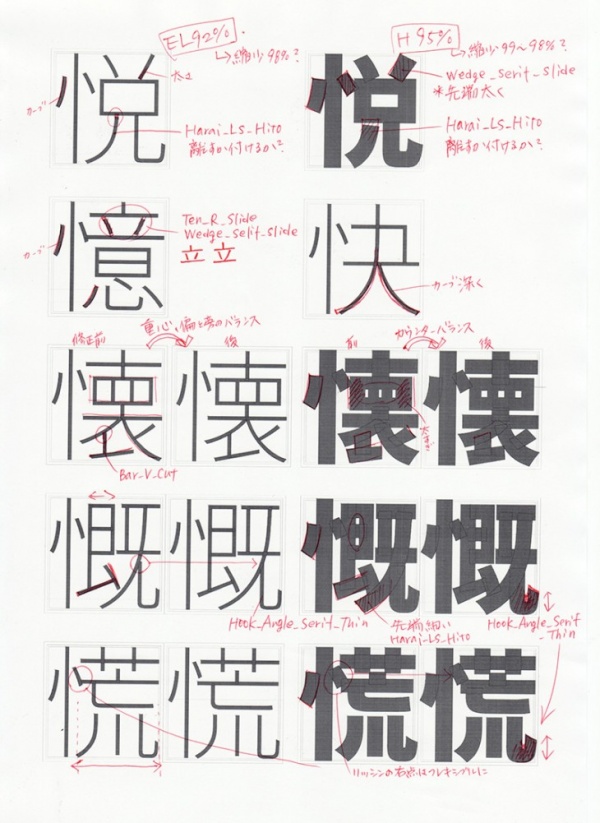 EL92%.
↳縮少 98%?
H 95%
↳縮少 99〜98%?
悦
太さ
カーブ
Harai_LS_Hito
離すか付けるか?
悦
Wedge_Serif_Slide
*先端太く
Harai_LS_Hito
離すか付けるか?
憶
カーブ
Ten_R_Slide
Wedge_Serif_Slide
立 立
快
カーブ深く
重心、偏と旁のバランス
修正前
後
懐 懐
Bar_V_Cut
カウンターバランス
前
後
懐 懐
太すぎ
慨 慨
Hook_Angle_Serif_Thin
慨 慨
先端細い
Harai_LS_Hito
Hook_Angle_Serif
_Thin
慌 慌
慌 慌
リッシンの右点はフレキシブルに